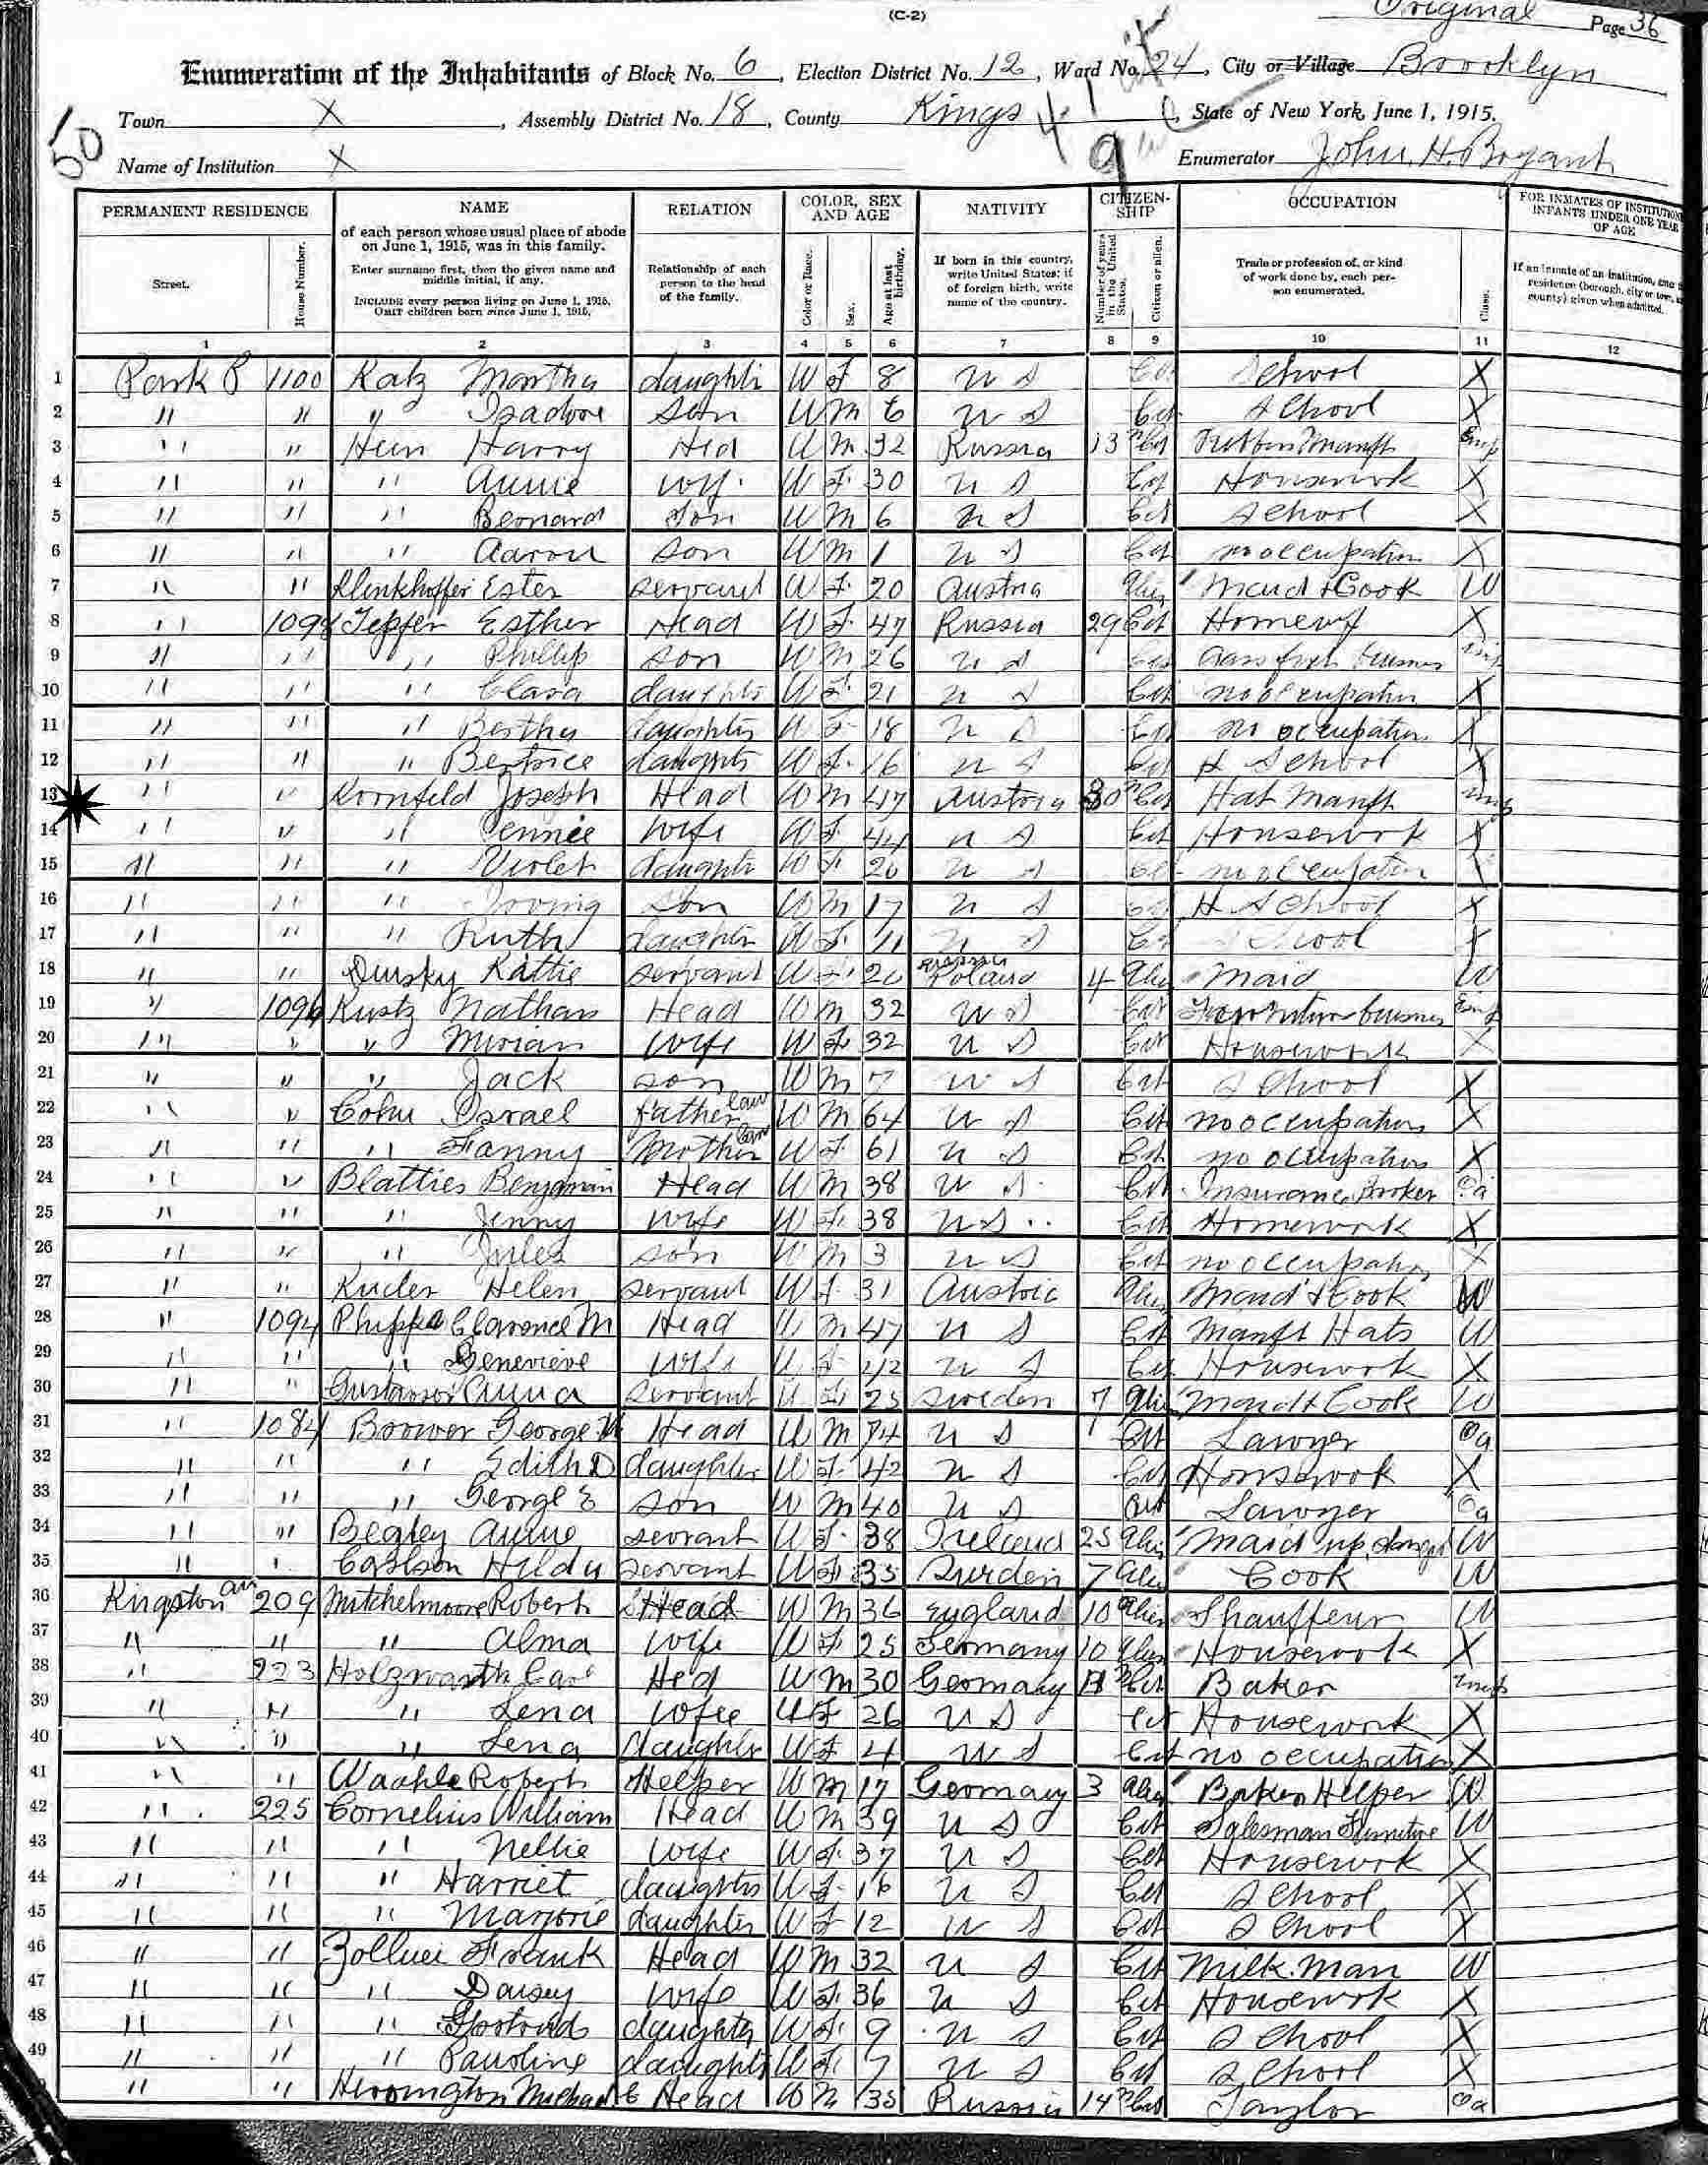 (C-2)
Original Page 36
Enumeration of the Inhabitants of Block No. 6, Election District No. 12, Ward No. 24, City or Village Brooklyn
Town X, Assembly District No. 18, County Kings, State of New York, June 1, 1915.
50
Name of Institution X Enumerator John H. Bryant
PERMANENT RESIDENCE NAME RELATION COLOR, SEX AND AGE NATIVITY CITIZEN-SHIP OCCUPATION FOR INMATES OF INSTITUTIONS INFANTS UNDER ONE YEAR OF AGE
Street. House Number. of each person whose usual place of abode on June 1, 1915, was in this family. Enter surname first, then the given name and middle initial, if any. INCLUDE every person living on June 1, 1915. OMIT children born since June 1, 1915. Relationship of each person to the head of the family. Color or Race. Sex. Age at last birthday. If born in this country, write United States; if of foreign birth, write name of the country. Number of years in the United States. Citizen or alien. Trade or profession of, or kind of work done by, each person enumerated. Class. If an inmate of an institution, residence (borough, city or town, county) given when admitted.
1 2 3 4 5 6 7 8 9 10 11 12
1 Park P 1100 Katz Martha daughte W F 8 U S Cit School X
2 " " " Isadore son W M 6 U S Cit School X
3 " " Hein Harry Hed W M 32 Russia 13 Cit Emp
4 " " " Annie wif W F 30 U S Cit Housewrk X
5 " " " Beonard Son W M 6 U S Cit School X
6 " " " Aaron son W M 1 U S Cit no occupation X
7 " " Klinkhoffer Ester servant W F 20 Austria Alien Maid & Cook W
8 " 1098 Tepfer Esther Head W F 47 Russia 29 Cit X
9 " " " Phillip son W M 26 U S Cit
10 " " " Clara daughter W F 21 U S Cit no occupation X
11 " " " Bertha daughter W F 18 U S Cit no occupation X
12 " " " Bertrice daughter W F 16 U S Cit H School X
13 " " Kornfeld Joseph Head W M 47 Austria 30 Cit Hat Manft
14 " " " Jennie wife W F 44 U S Cit Housework X
15 " " " Violet daughte W F 20 U S Cit no occupation X
16 " " " Irving son W M 17 U S Cit H School X
17 " " " Ruth daughter W F 11 U S Cit School X
18 " " Kattie servant W F 20 Russia Poland 4 Alien Maid W
19 " 1096 Kurtz Nathan Head W M 32 U S Cit Emp
20 " " " Mirian wife W F 32 U S Cit Housework X
21 " " " Jack son W M 7 U S Cit School X
22 " " Cohn Israel Father law W M 64 U S Cit no occupation X
23 " " " Fanny Mother law W F 61 U S Cit no occupation X
24 " " Blatties Benjamin Head W M 38 U S Cit Insurance Broker Oa
25 " " " Jenny wife W F 38 U S Cit Homework X
26 " " " Jules son W M 3 U S Cit no occupation X
27 " " Kuder Helen servant W F 31 Austria Alien Maid & Cook W
28 " 1094 Clarence M Head W M 47 U S Cit Manft Hats W
29 " " " Genevieve wife W F 42 U S Cit Housework X
30 " " Anna servant W F 25 Sweden 7 Alien Maid & Cook W
31 " 1084 Brower George Head W M 74 U S Cit Lawyer Oa
32 " " " Edith D daughter W F 42 U S Cit Housework X
33 " " " George E son W M 40 U S Cit Lawyer Oa
34 " " Begley Annie servant W F 38 Ireland 25 Alien Maid W
35 " " Carlson Hilda servant W F 35 Sweden 7 Alien Cook W
36 Kingston av 209 Mitchelmoore Robert Head W M 36 England 10 Alien Shauffeur W
37 " " " Alma wife W F 25 Germany 10 Alien Housework X
38 " 223 Holzwarth Carl Hed W M 30 Germany 11 Cit Baker
39 " " " Lena wife W F 26 U S Cit Housework X
40 " " " Lena daughter W F 4 U S Cit no occupation X
41 " " Waahle Robert Helper W M 17 Germany 3 Alien Baker Helper W
42 " 225 Cornelius William Head W M 39 U S Cit Salesman Furniture W
43 " " " Nellie wife W F 37 U S Cit Housework X
44 " " " Harriet daughter W F 16 U S Cit School X
45 " " " Marjorie daughter W F 12 U S Cit School X
46 " " Frank Head W M 32 U S Cit Milk Man W
47 " " " Daisey wife W F 36 U S Cit Housework X
48 " " " daughter W F 9 U S Cit School X
49 " " " Pauoline daughter W F 7 U S Cit School X
" " Herrington Head W M 35 Russia 14 Cit Taylor Oa